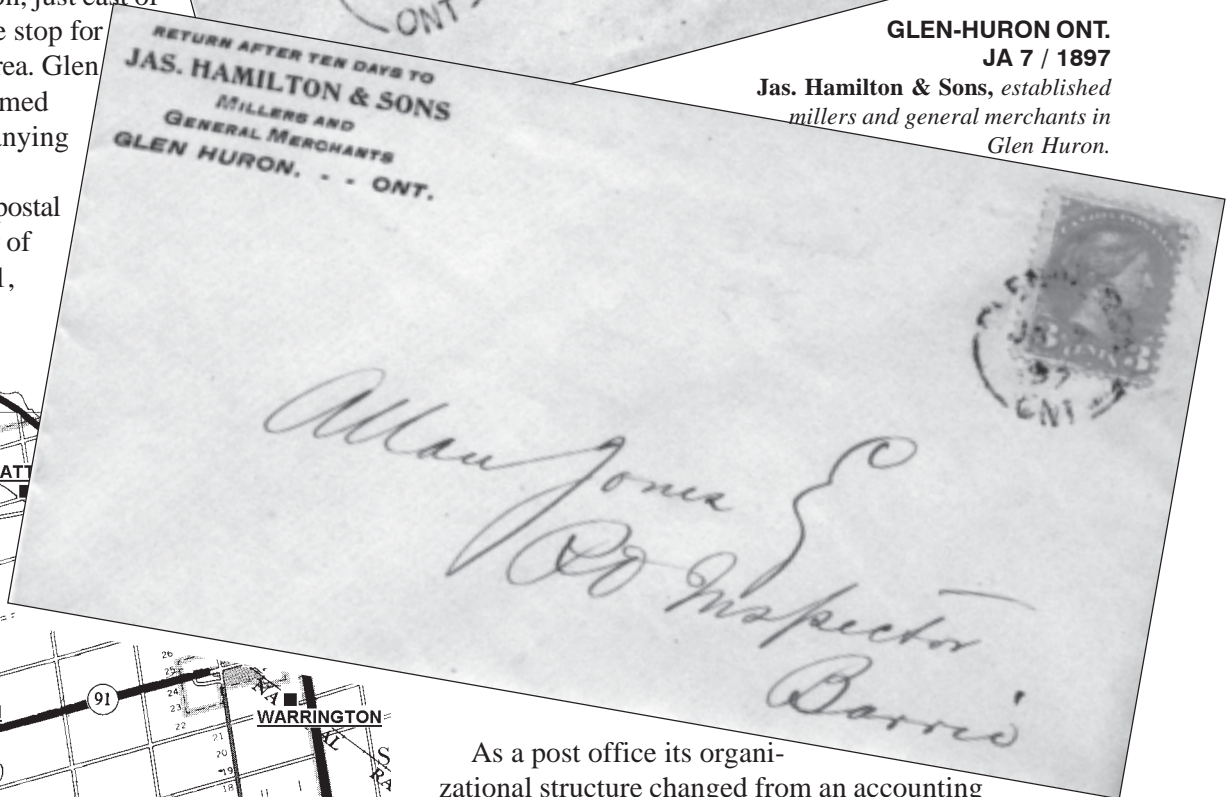 on, just east of
e stop for
rea. Glen
med
nying
postal
of
1,
ONT
GLEN-HURON ONT.
JA 7 / 1897
Jas. Hamilton & Sons, established
millers and general merchants in
Glen Huron.
RETURN AFTER TEN DAYS TO
JAS. HAMILTON & SONS
MILLERS AND
GENERAL MERCHANTS
GLEN HURON. - - ONT.
3 CENTS 3
97
ONT
Allan Jones
PO Inspector
Barrie
ATT
91
WARRINGTON
26
25
24
23
22
21
20
19
18
As a post office its organi-
zational structure changed from an accounting